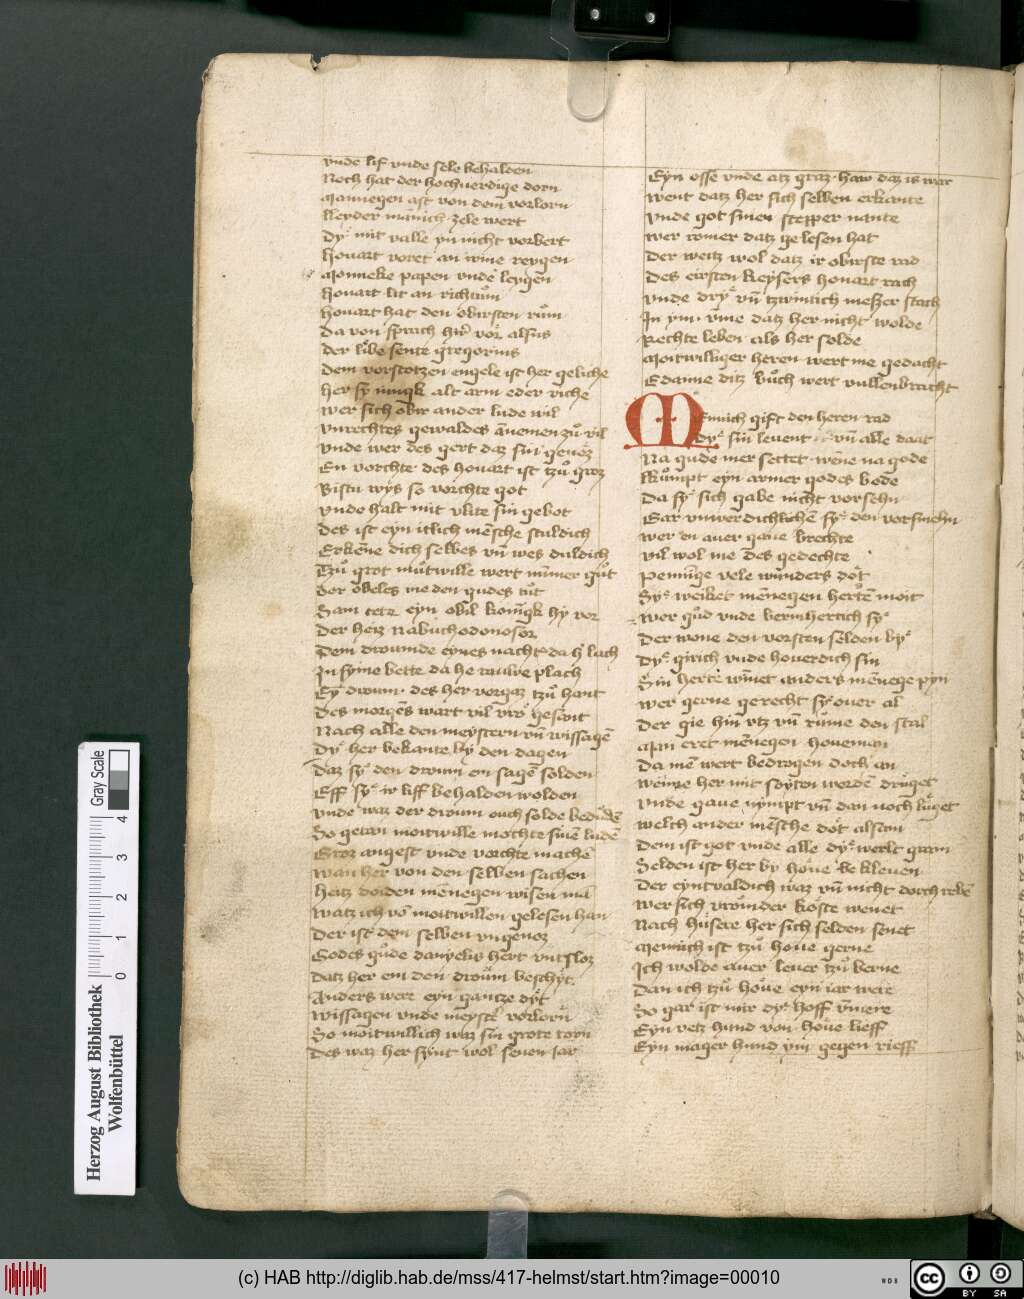 vnde lif vnde sele behalden
Noch hat der hochuerdige dorn
Mannegen ast von dem vorlorn
lleyder manich zele wert
Dy mit valle yn nicht vorbert
houart voret an irme reygen
Monneke papen vnde leygen
houart lit an richtům
houart hat den obirsten rům
Da von sprach hir vor alsus
der libe sente gregorius
Dem vorstotzen engele ist her geliche
her sy iungk alt arm eder riche
wer sich obir ander lude wil
vnrechtes gewaldes anemen zů vil
vnde wer des gert daz sin genoz
En vorchte des houart ist tzů groz
Bistu wys so vorchte got
vnde halt mit vlite sin gebot
des ist eyn itlich mēsche sculdich
Erkēne dich selbes vn̄ wes duldich
Tzů grot můtwille wert nūmer gůt
der obeles me den gudes tůt
Sam tetz eyn obil konīgk hy vor
der heiz nabuchodonosor
Dem droumde eynes nachtes da he lach
In syme bette da he rauwe plach
Ey droum des her vorgaz tzů hant
des morgēs wart vil vro gesant
Nach alle den meystern vn̄ wissagē
Dy her bekante by den dagen
Daz sy den droum em sagē solden
Eff sy ir liff behalden wolden
vnde waz der droum ouch solde bedudē
So getan moitwille mochte sinē ludē
Groz angest vnde vorchte machē
wan her von den selben sachen
heiz doiden mēnegen wisen man
watz ich vō moitwillen gelesen han
Der ist dem selben vngenoz
Godes gůde danyelis hert vntsloz
datz her em den droům beschyt
Anders were eyn gantze dyt
wissagen vnde meyster vorlorn
So moitwillich waz sin grote torn
Des waz her synt wol seuen iar
Eyn osse vnde atz graz haw daz is war
went datz her sich selben erkante
vnde got sinen scepper nante
wer romer datz gelesen hat
der weitz wol datz ir obirste rad
des eirsten keysers houart rach
vnde dry vn̄ tzwintich messer stach
In ym vme datz her nicht wolde
Rechte leben als her solde
Moitwilliger heren wert me gedacht
Edanne ditz bůch wert vullenbracht
MEnnich gift den heren rad
dy sin leuent vn̄ alle daat
Na gude mer settet wēne na gode
kůmpt eyn armer godes bode
da sy sich gabe nicht vorsehn
Gar vnwerdichlichē sy den vorsmehn
wer en auer gaue brechte
vil wol me des gedechte
Pennīge vele wunders dot
Sy weiket mēnegen hertē moit
wer gůd vnde bermhertich sy
der wone den vorsten selden by
dy girich vnde houerdich sin
Sin herte wīnet anders mēnege pyn
wer gerne gerecht sy ouer al
der gie hin vtz vn̄ rume den stal
Man eret mēnegen houeman
da mē wert bedrogen doch an
wenne her mit seyten worden druget
vnde gaue nympt vn̄ dan noch luget
welch ander mēsche dot alsam
dem ist got vnde alle dy werlt gram
Selden ist her by houe bekleuen
der eyntvaldich waz vn̄ nicht dorch reben
wer sich vromder koste wenet
Nach husere her sich selden senet
Mennich ist tzů houe gerne
Ich wolde auer leuer tzů berne
dan ich tzů houe eyn iar were
So gar ist mir dy hoff vnmere
Eyn vetz hund von houe lieff
Eyn mager hund ym gegen rieff
Herzog August Bibliothek
Wolfenbüttel
0 1 2 3 4
Gray Scale
(c) HAB http://diglib.hab.de/mss/417-helmst/start.htm?image=00010
WDB
cc
BY SA